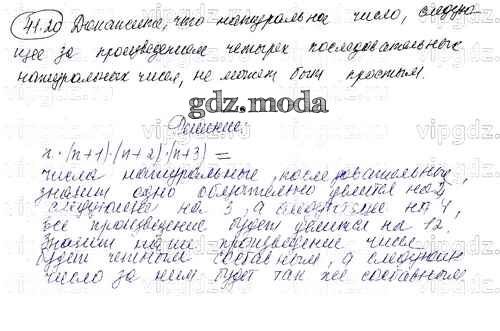 41.20 Докажите, что натуральное число, следую-
щее за произведением четырех последовательных
натуральных чисел, не может быть простым.
gdz.moda
Решение:
n·(n+1)·(n+2)·(n+3)=
числа натуральные, последовательные,
значит одно обязательно делится на 2,
на 3, а следующее на 4,
все произведение будет делится на 12.
Значит наше произведение чисел
будет четным составным, а следующее
число за ним будет так же составным